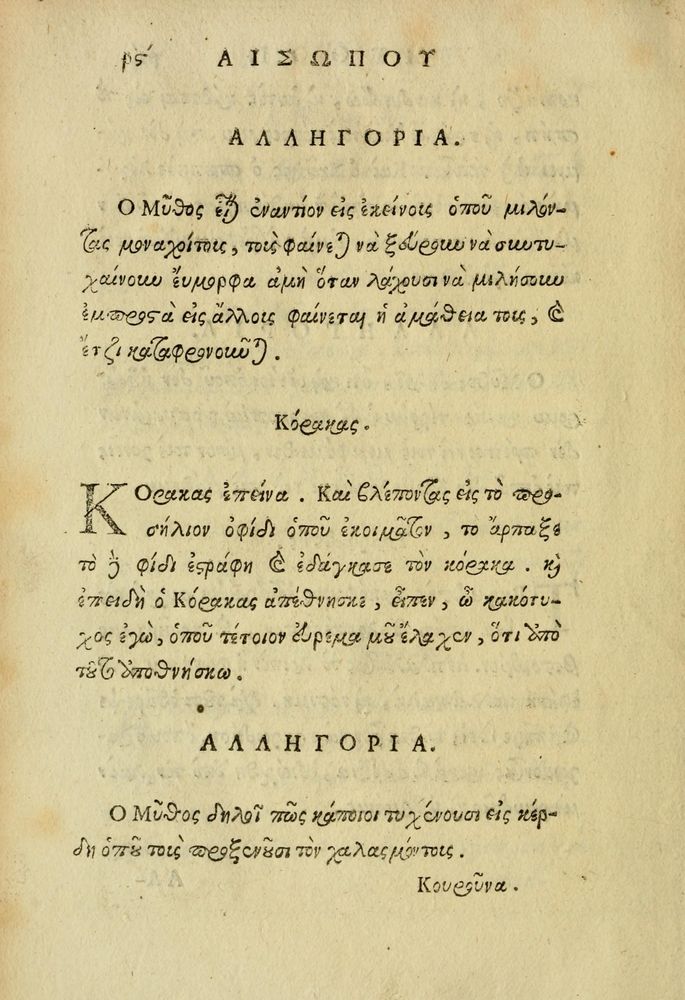 ρϛ΄ ΑΙΣΩΠΟΥ
ΑΛΛΗΓΟΡΙΑ.
Ο Μῦθος εἶναι ἐναντίον εἰς ἐκείνοις ὁποῦ μιλόν-
τας μοναχοίτοις, τοῖς φαίνεται νὰ ξεύρουν νὰ σιντυ-
χαίνουν ἔυμορφα ἀμὴ ὅταν λάχουσι νὰ μιλήσουν
ἐμπροστὰ εἰς ἄλλοις φαίνεται ἡ ἀμάθεια τοις, καὶ
ἔτζι καταφρονοιοῦνται.
Κόρακας.
ΚΟρακας ἐπείνα. Καὶ βλέποντας εἰς τὸ προ-
σήλιον ὀφίδι ὁποῦ ἐκοιμᾶτον, το ἅρπαξε
τὸ ὀ φίδι ἐστράφη καὶ ἐδάγκασε τὸν κόρακα. κὶ
ἐπειδὴ ὁ Κόρακας ἀπέθνησκε, εἶπεν, ὦ κακότυ-
χος ἐγὼ, ὁποῦ τέτοιον ἕυρεμα μοῦ ἔλαχεν, ὅτι ἀπὸ
τοῦτο ἀποθνήσκω.
ΑΛΛΗΓΟΡΙΑ.
Ο Μῦθος δηλοῖ πῶς κάποιοι τυχένουσι εἰς κέρ-
δη ὁποῦ τοῖς προξενοῦσι τὸν χαλασμόντοις.
Κουροῦνα.